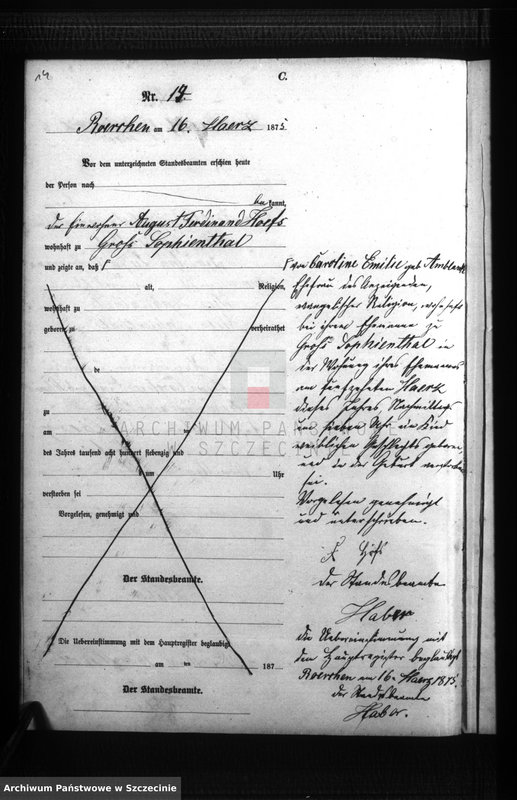 C.
Nr. 14.
Roerchen am 16. Maerz 1875
Vor dem unterzeichneten Standesbeamten erschien heute
der Person nach
be kannt,
der Einwohner August Ferdinand Hoefs
wohnhaft zu Gross Sophienthal
und zeigte an, daß
alt, Religion,
wohnhaft zu
geboren zu verheirathet
de
zu
am
des Jahres tausend acht hundert siebenzig und
um Uhr
verstorben sei
Vorgelesen, genehmigt und
Der Standesbeamte.
Die Uebereinstimmung mit dem Hauptregister beglaubigt
am ten 187
Der Standesbeamte.
von Caroline Emilie geb.
Ehefrau des Anzeigenden,
evangelischer Religion, wohnhaft
bei ihrem Ehemanne zu
Gross Sophienthal in
der Wohnung ihres Ehemannes
am fünfzehnten Maerz
dieses Jahres, Nachmittags
um sieben Uhr ein Kind
weiblichen Geschlechts geboren
und in der Geburt verstorben
sei.
Vorgelesen genehmigt
und unterschrieben.
Der Standesbeamte
Haber
Die Uebereinstimmung mit
dem Hauptregister beglaubigt
Roerchen am 16. Maerz 1875.
der Standesbeamte
Haber.
ARCHIWUM PAŃSTWOWE
W SZCZECINIE
Archiwum Państwowe w Szczecinie